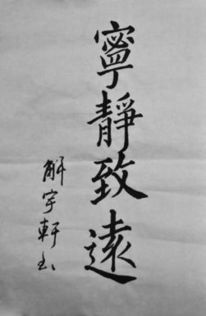 寧靜致遠
解宇軒书